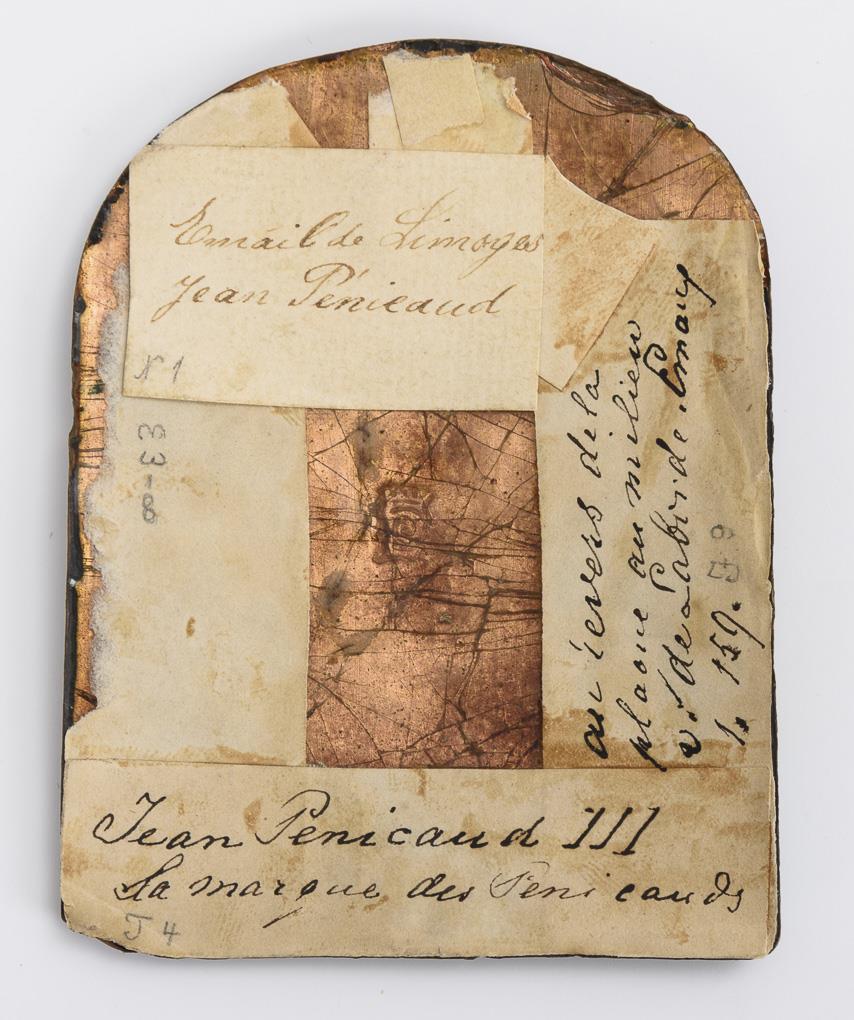 Email de Limoges
Jean Pénicaud
N 1
33-8
au revers de la
plaque au milieu
v. de Laborde. Emaux
1. 159.
J 9
Jean Penicaud III
La marque des Penicauds
J 4